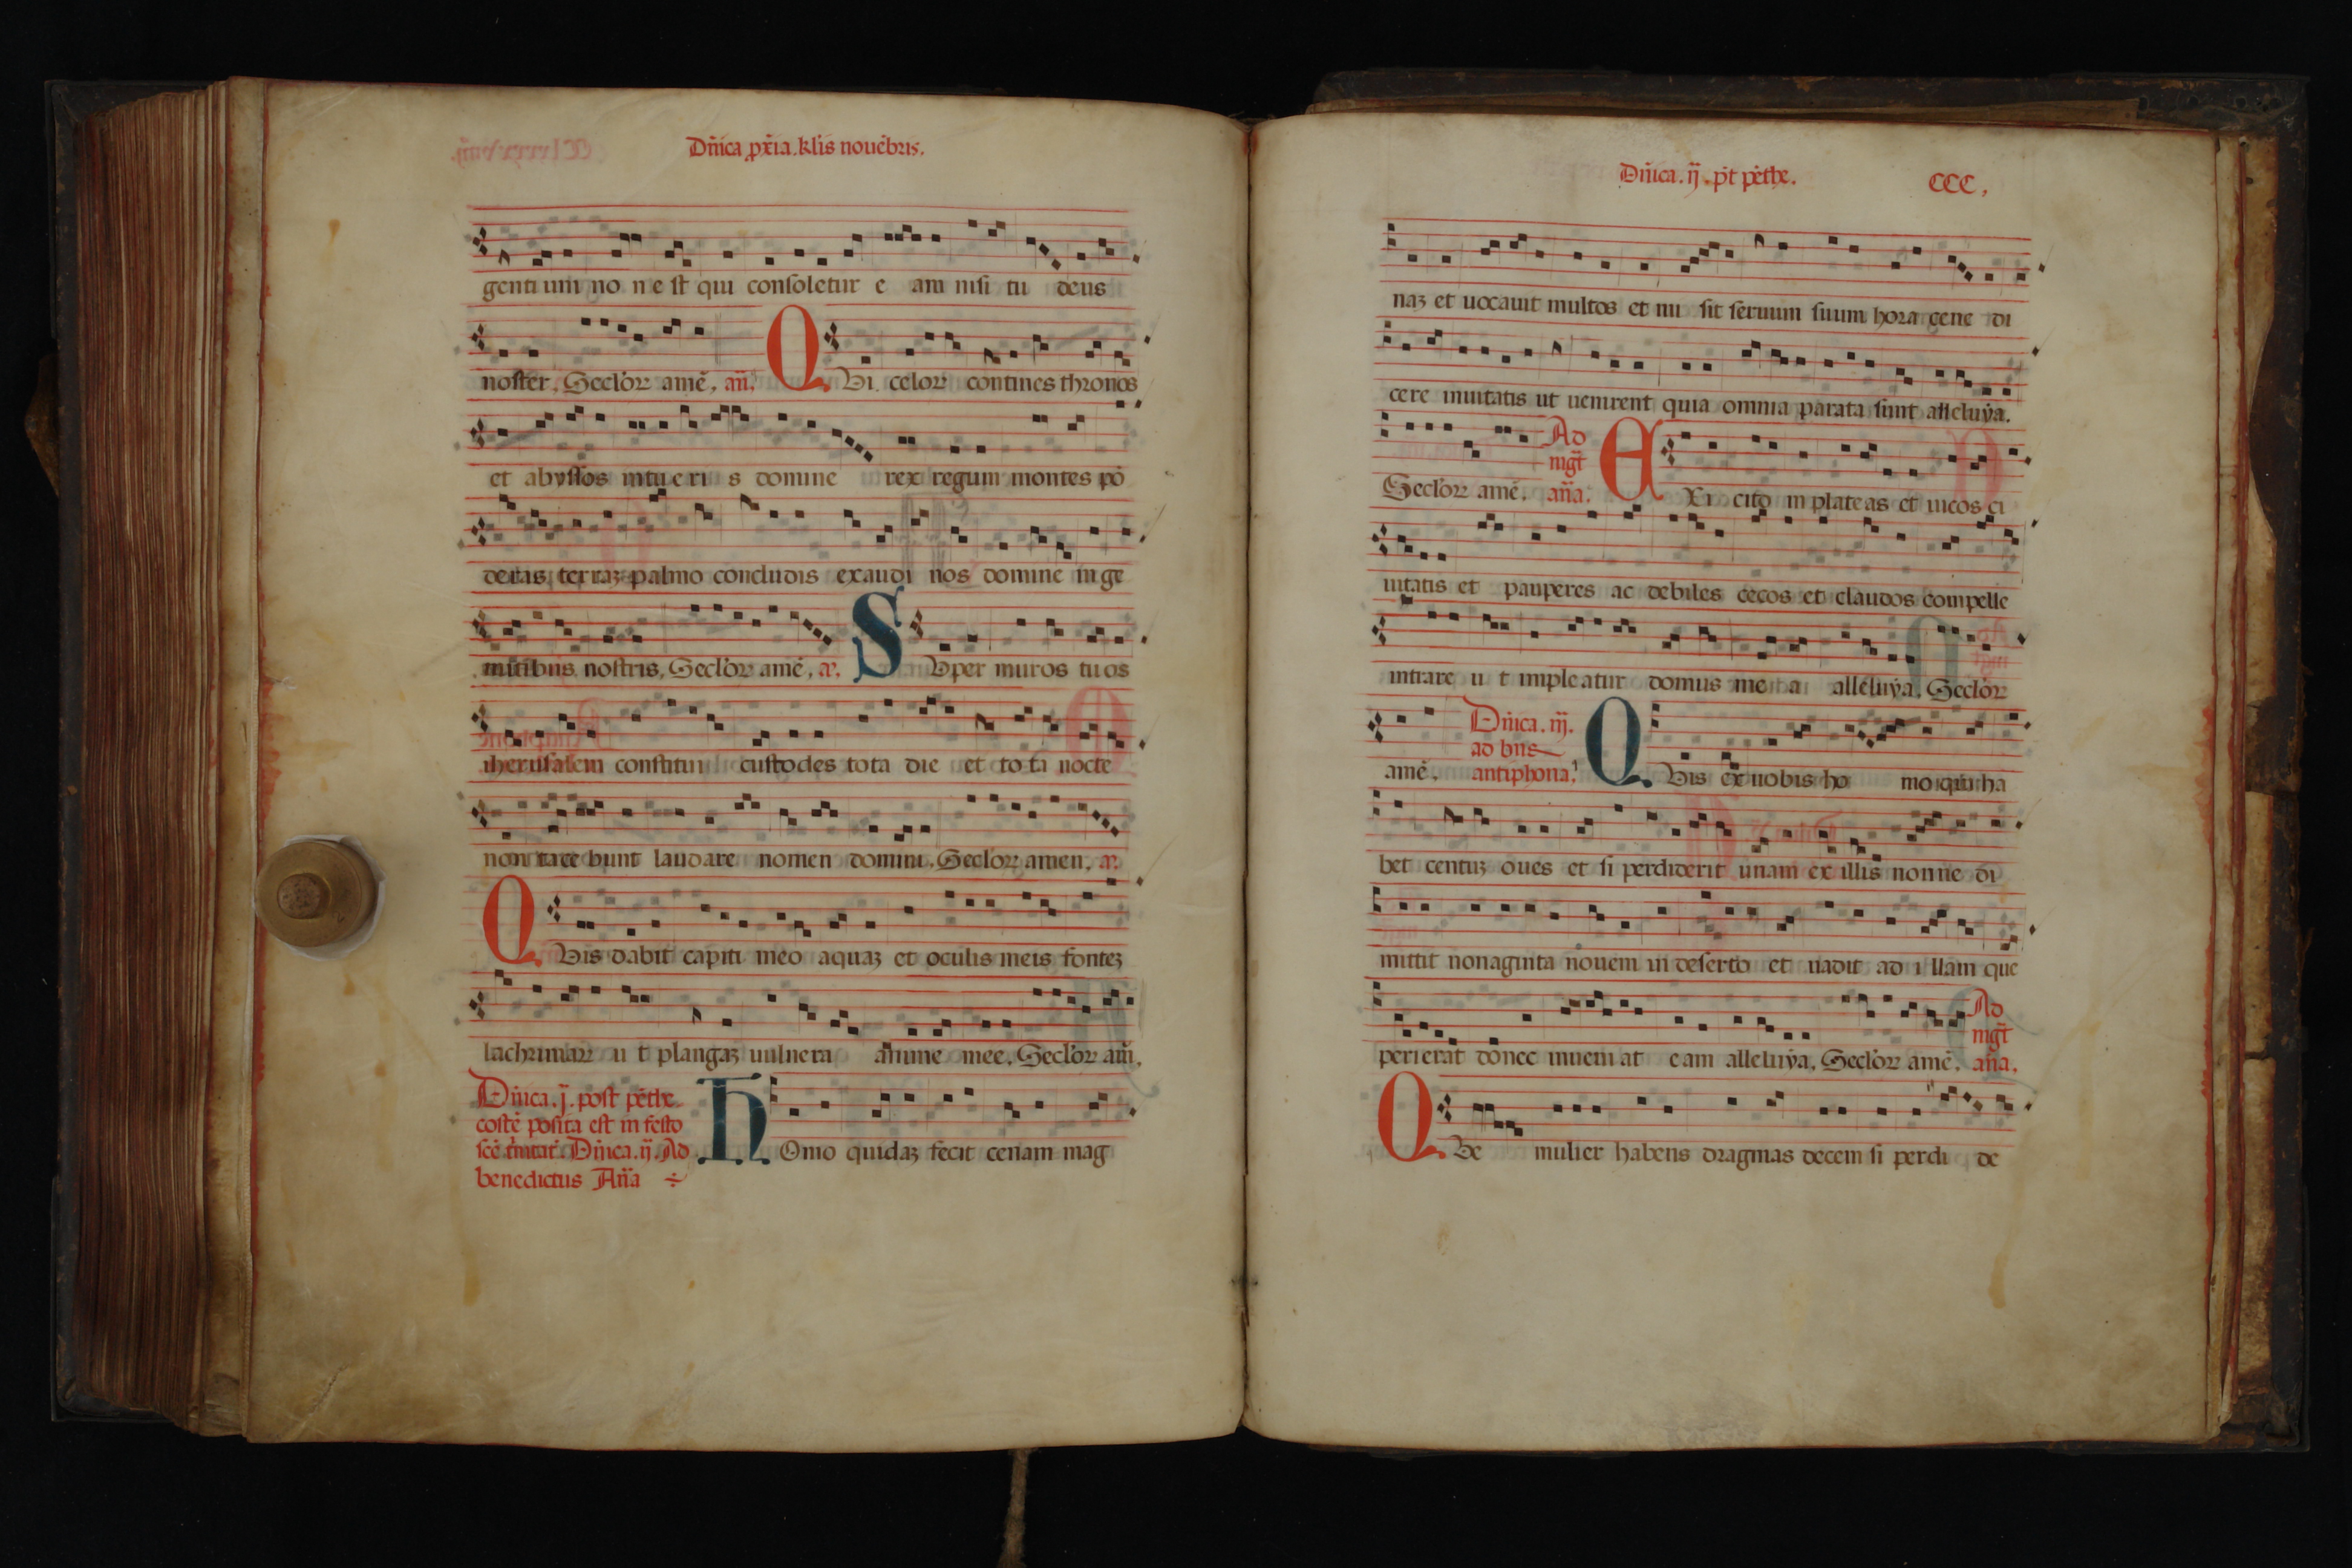 Dñica pxīa. klis nouēbris.
gentium no n e st qui consoletur e am nisi tu deus
noster. Seclōꝝ amē. añ. QVi celoꝝ contines thronos
et abyssos intueri s domine rex regum montes pō
deras terraꝫ palmo concludis exaudi nos domine in ge
mitibus nostris. Seclōꝝ amē. SVper muros tuos
iherusalem constitui custodes tota die et tota nocte
non tace bunt laudare nomen domini. Seclōꝝ amen.
QVis dabit capiti meo aquaꝫ et oculis meis fonteꝫ
lachrimaꝝ u t plangaꝫ uulnera anime mee. Seclōꝝ am̄.
Dñica. j. post pēthe
costē posita est in festo
scē trinitat. Dñica. ij. Ad
benedictus Aña
HOmo quidaꝫ fecit cenam mag
Dñica. ij. pt pēthe. CCC,
naꝫ et uocauit multos et mi sit seruum suum hora cene di
cere inuitatis ut uenirent quia omnia parata sunt alleluya.
Seclōꝝ amē. Ad mgt aña. EXi cito in plateas et uicos ci
uitatis et pauperes ac debiles cecos et claudos compelle
intrare u t impleatur domus me a alleluya. Seclōꝝ
amē. Dñica. iij. ad bns antiphona. QVis ex uobis ho mo qui ha
bet centuꝫ oues et si perdiderit unam ex illis nonne di
mittit nonaginta nouem in deserto et uadit ad i llam que
perierat donec inueni at eam alleluya. Seclōꝝ amē. Ad mgt aña.
QVe mulier habens dragmas decem si perdi de